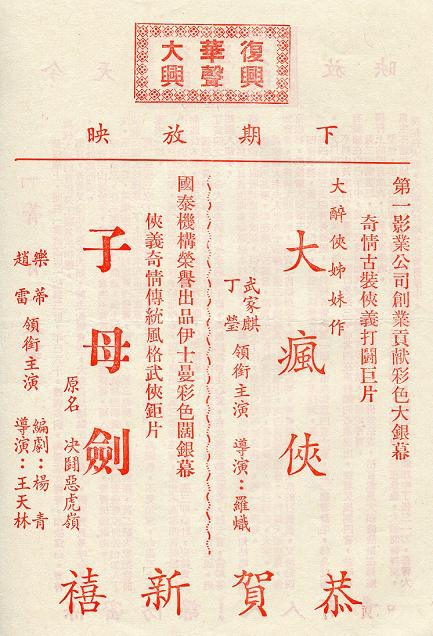 復興
華聲
大興
下期放映
第一影業公司創業貢獻彩色大銀幕
奇情古裝俠義打鬪巨片
大醉俠姊妹作
大瘋俠
武家麒
丁瑩
領銜主演 導演：羅熾
國泰機構榮譽出品伊士曼彩色闊銀幕
俠義奇情傳統風格武俠鉅片
子母劍
原名 決鬪惡虎嶺
樂蒂
趙雷
領銜主演
編劇：楊青
導演：王天林
恭賀新禧